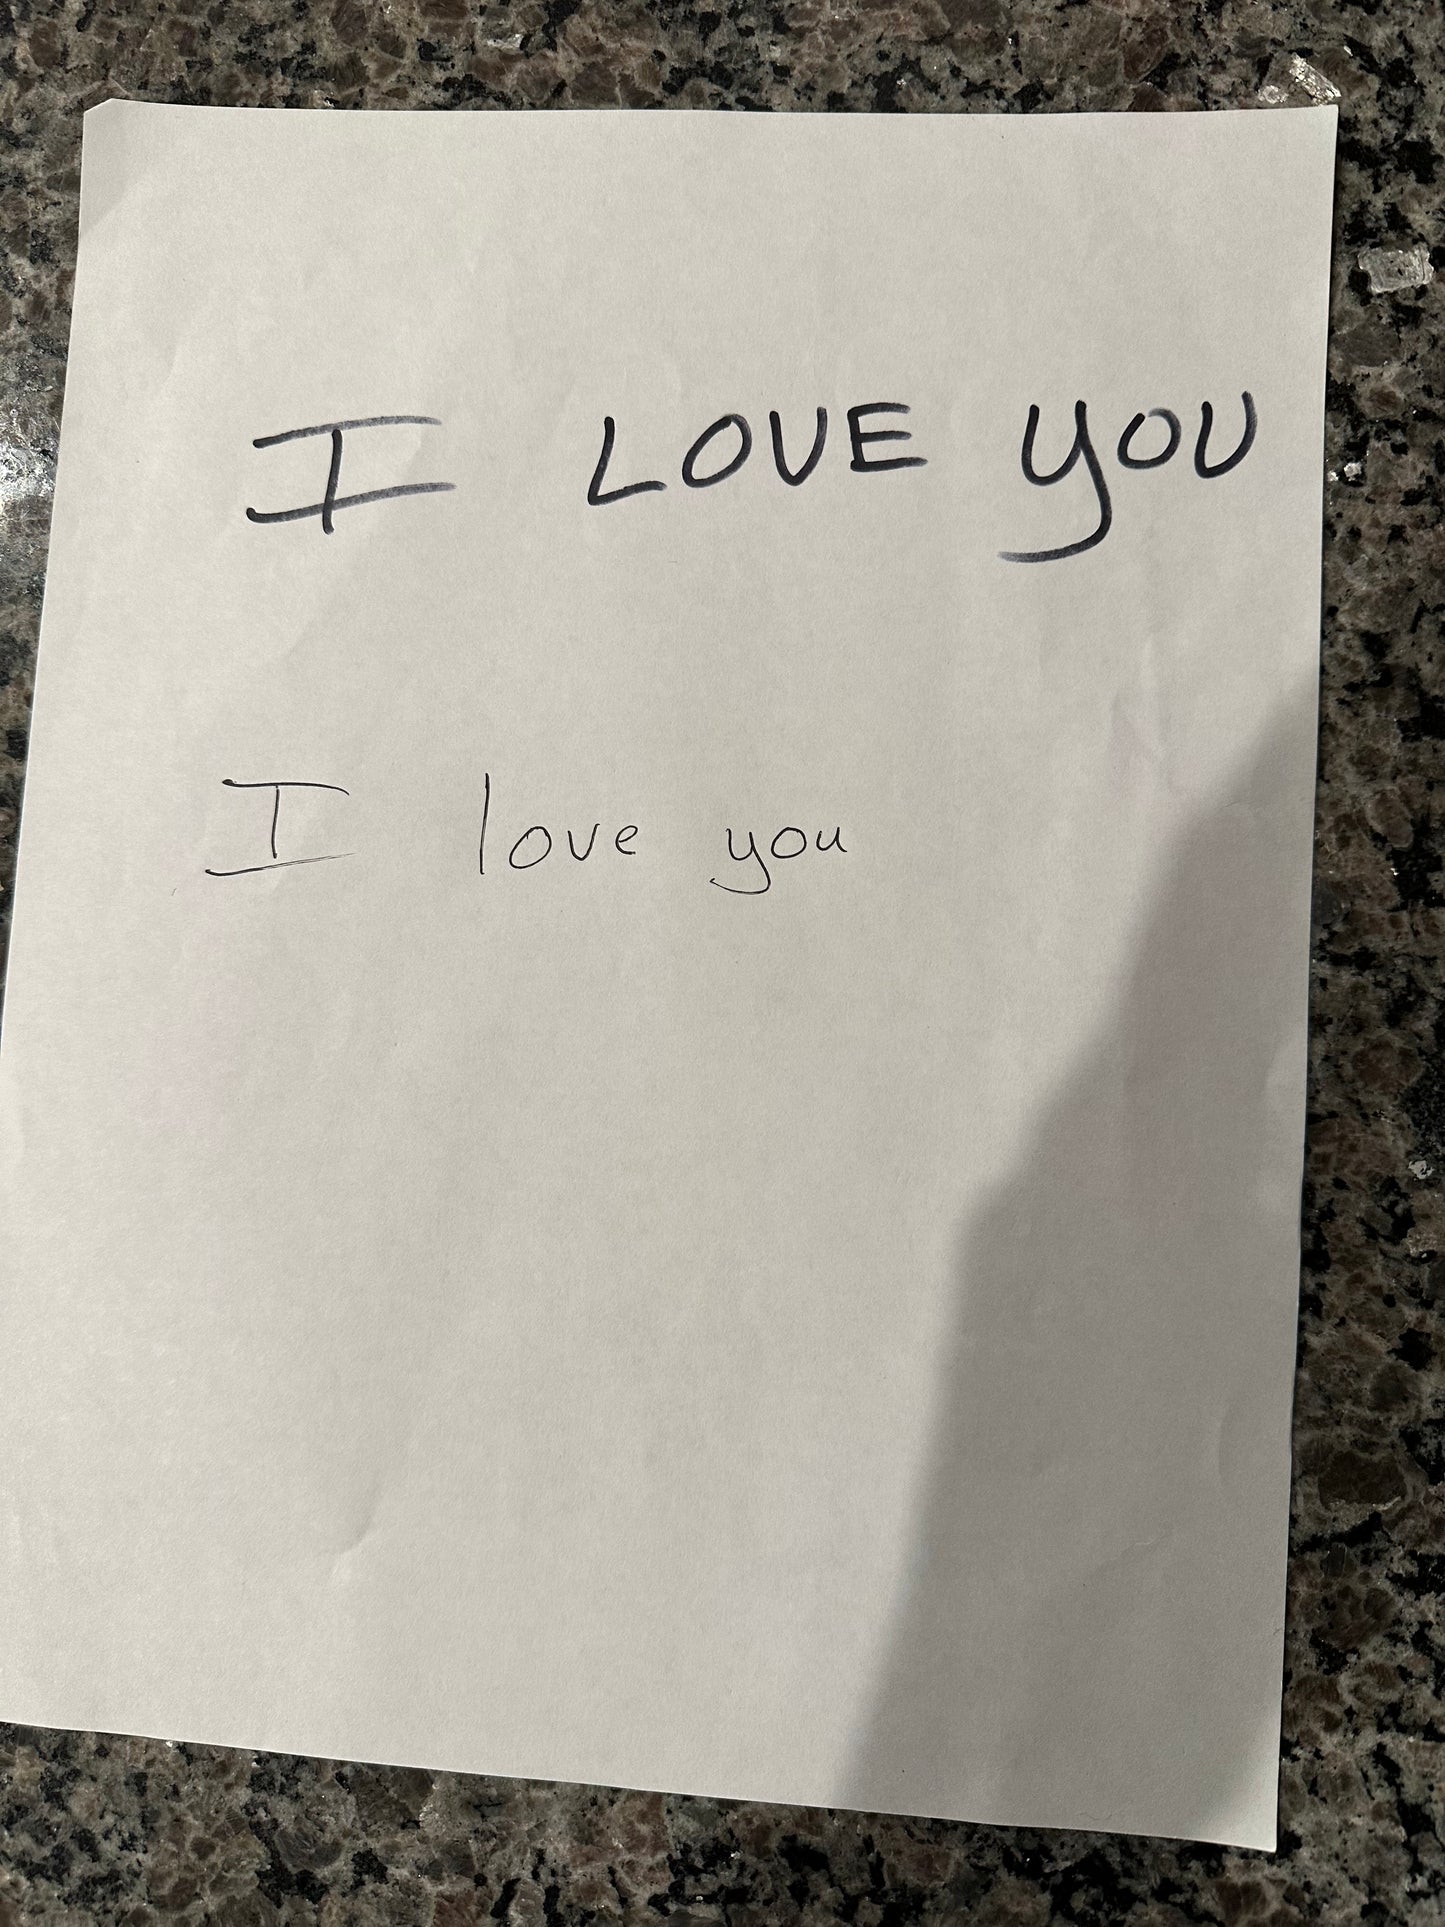 I LOVE YOU
I love you